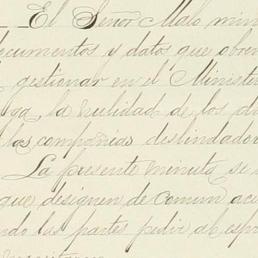 El Señor Malo mini
documentos y datos que obren
gestionar en el Ministe
ga, la nulidad de los di
las compañias deslindador
La presente minuta se
que designen de comun acu
ndo las partes pedir al esp